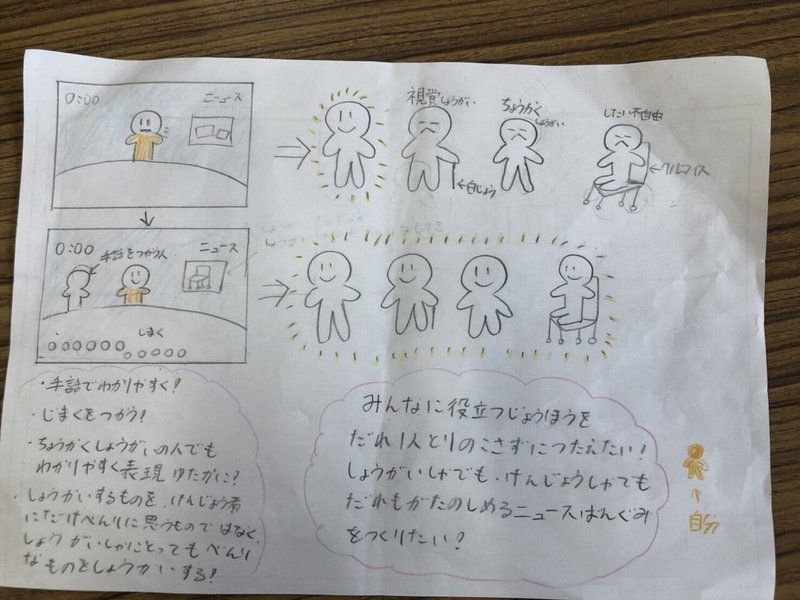 0:00 ニュース
視覚しょうがい
ちょうかく
しょうがい
したい不自由
←クルマイス
白じょう
0:00 ニュース
手話をつかう人
じまく
・手話でわかりやすく!
・じまくをつかう!
・ちょうかくしょうがいの人でも
わかりやすく表現ゆたかに?
・しょうかいするものを、けんじょう者
にだけべんりに思うものではなく、
しょうがいしゃにとってもべんり
なものをしょうかいする!
みんなに役立つじょうほうを
だれ1人とりのこさずにつたえたい!
しょうがいしゃでも、けんじょうしゃでも
だれもがたのしめるニュースばんぐみ
をつくりたい!
自分